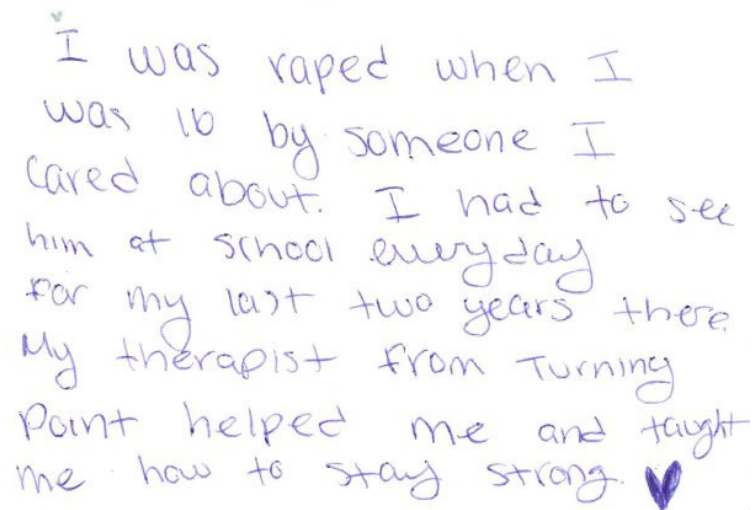 I was raped when I
was 16 by someone I
cared about. I had to see
him at school everyday
for my last two years there.
My therapist from Turning
Point helped me and taught
me how to stay strong.